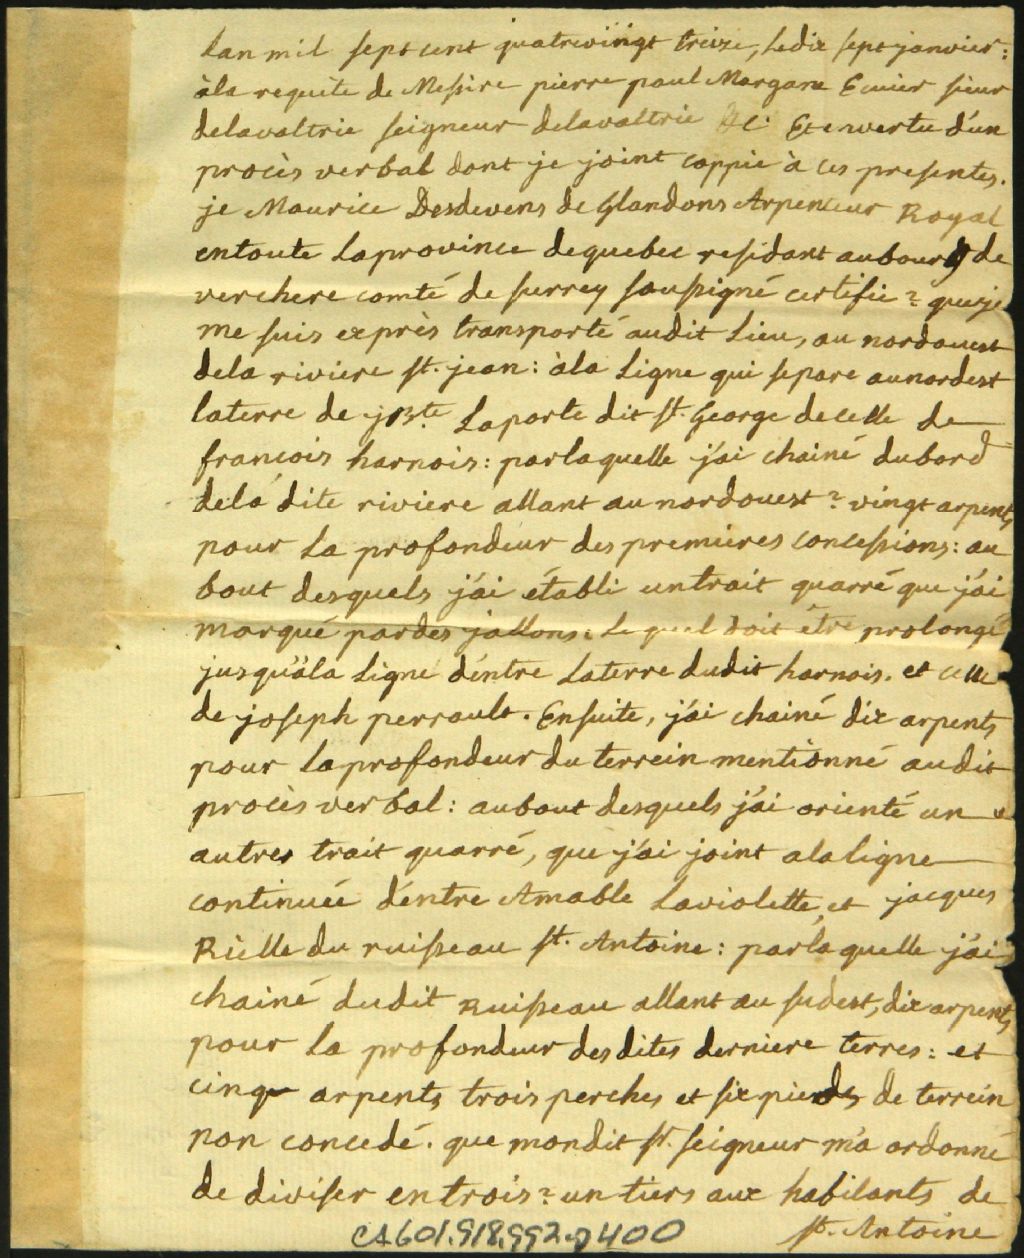 Lan mil sept cent quatrevingt treize, Le dix sept janvier:
àla requête de Messire pierre paul Margane Ecuier sieur
delavaltrie seigneur delavaltrie &c: Et envertu d'un
procès verbal dont je joint coppie à ces presentes.
je Maurice Desdevens de Glandons Arpenteur Royal
entoute Laprovince dequebec residant aubourg de
verchere comté de surrey soussigné certifie? queje
me suis exprès transporté audit Lieu, au nordouest
dela riviere st. jean: àla Ligne qui separe aunordest
laterre de jBte. Laporte dit st. George decelle de
francois harnois: parlaquelle j'ai chainé dubord
dela dite riviere allant aunordouest? vingt arpents
pour La profondeur des premieres concessions: au
bout desquels j'ai établi untrait quarré que j'ai
marqué pardes jallons: Lequel doit être prolongé
jusqu'àla Ligne d'entre Laterre dudit harnois. et celle
de joseph perrault. Ensuite, j'ai chainé dix arpents
pour Laprofondeur du terrein mentionné audit
procès verbal: aubout desquels j'ai orienté un
autres trait quarré, que j'ai joint alaligne
continuée d'entre Amable Laviolette, et jacques
Rielle du ruisseau st. Antoine: parlaquelle j'ai
chainé dudit Ruisseau allant au sudest, dix arpents
pour La profondeur desdites derniere terres: et
cinq arpents trois perches et six pieds de terrein
non concedé. que mondit sr. seigneur m'a ordonné
de diviser entrois? un tiers aux habitants de
st. Antoine
CA601,S18,SS2,D400